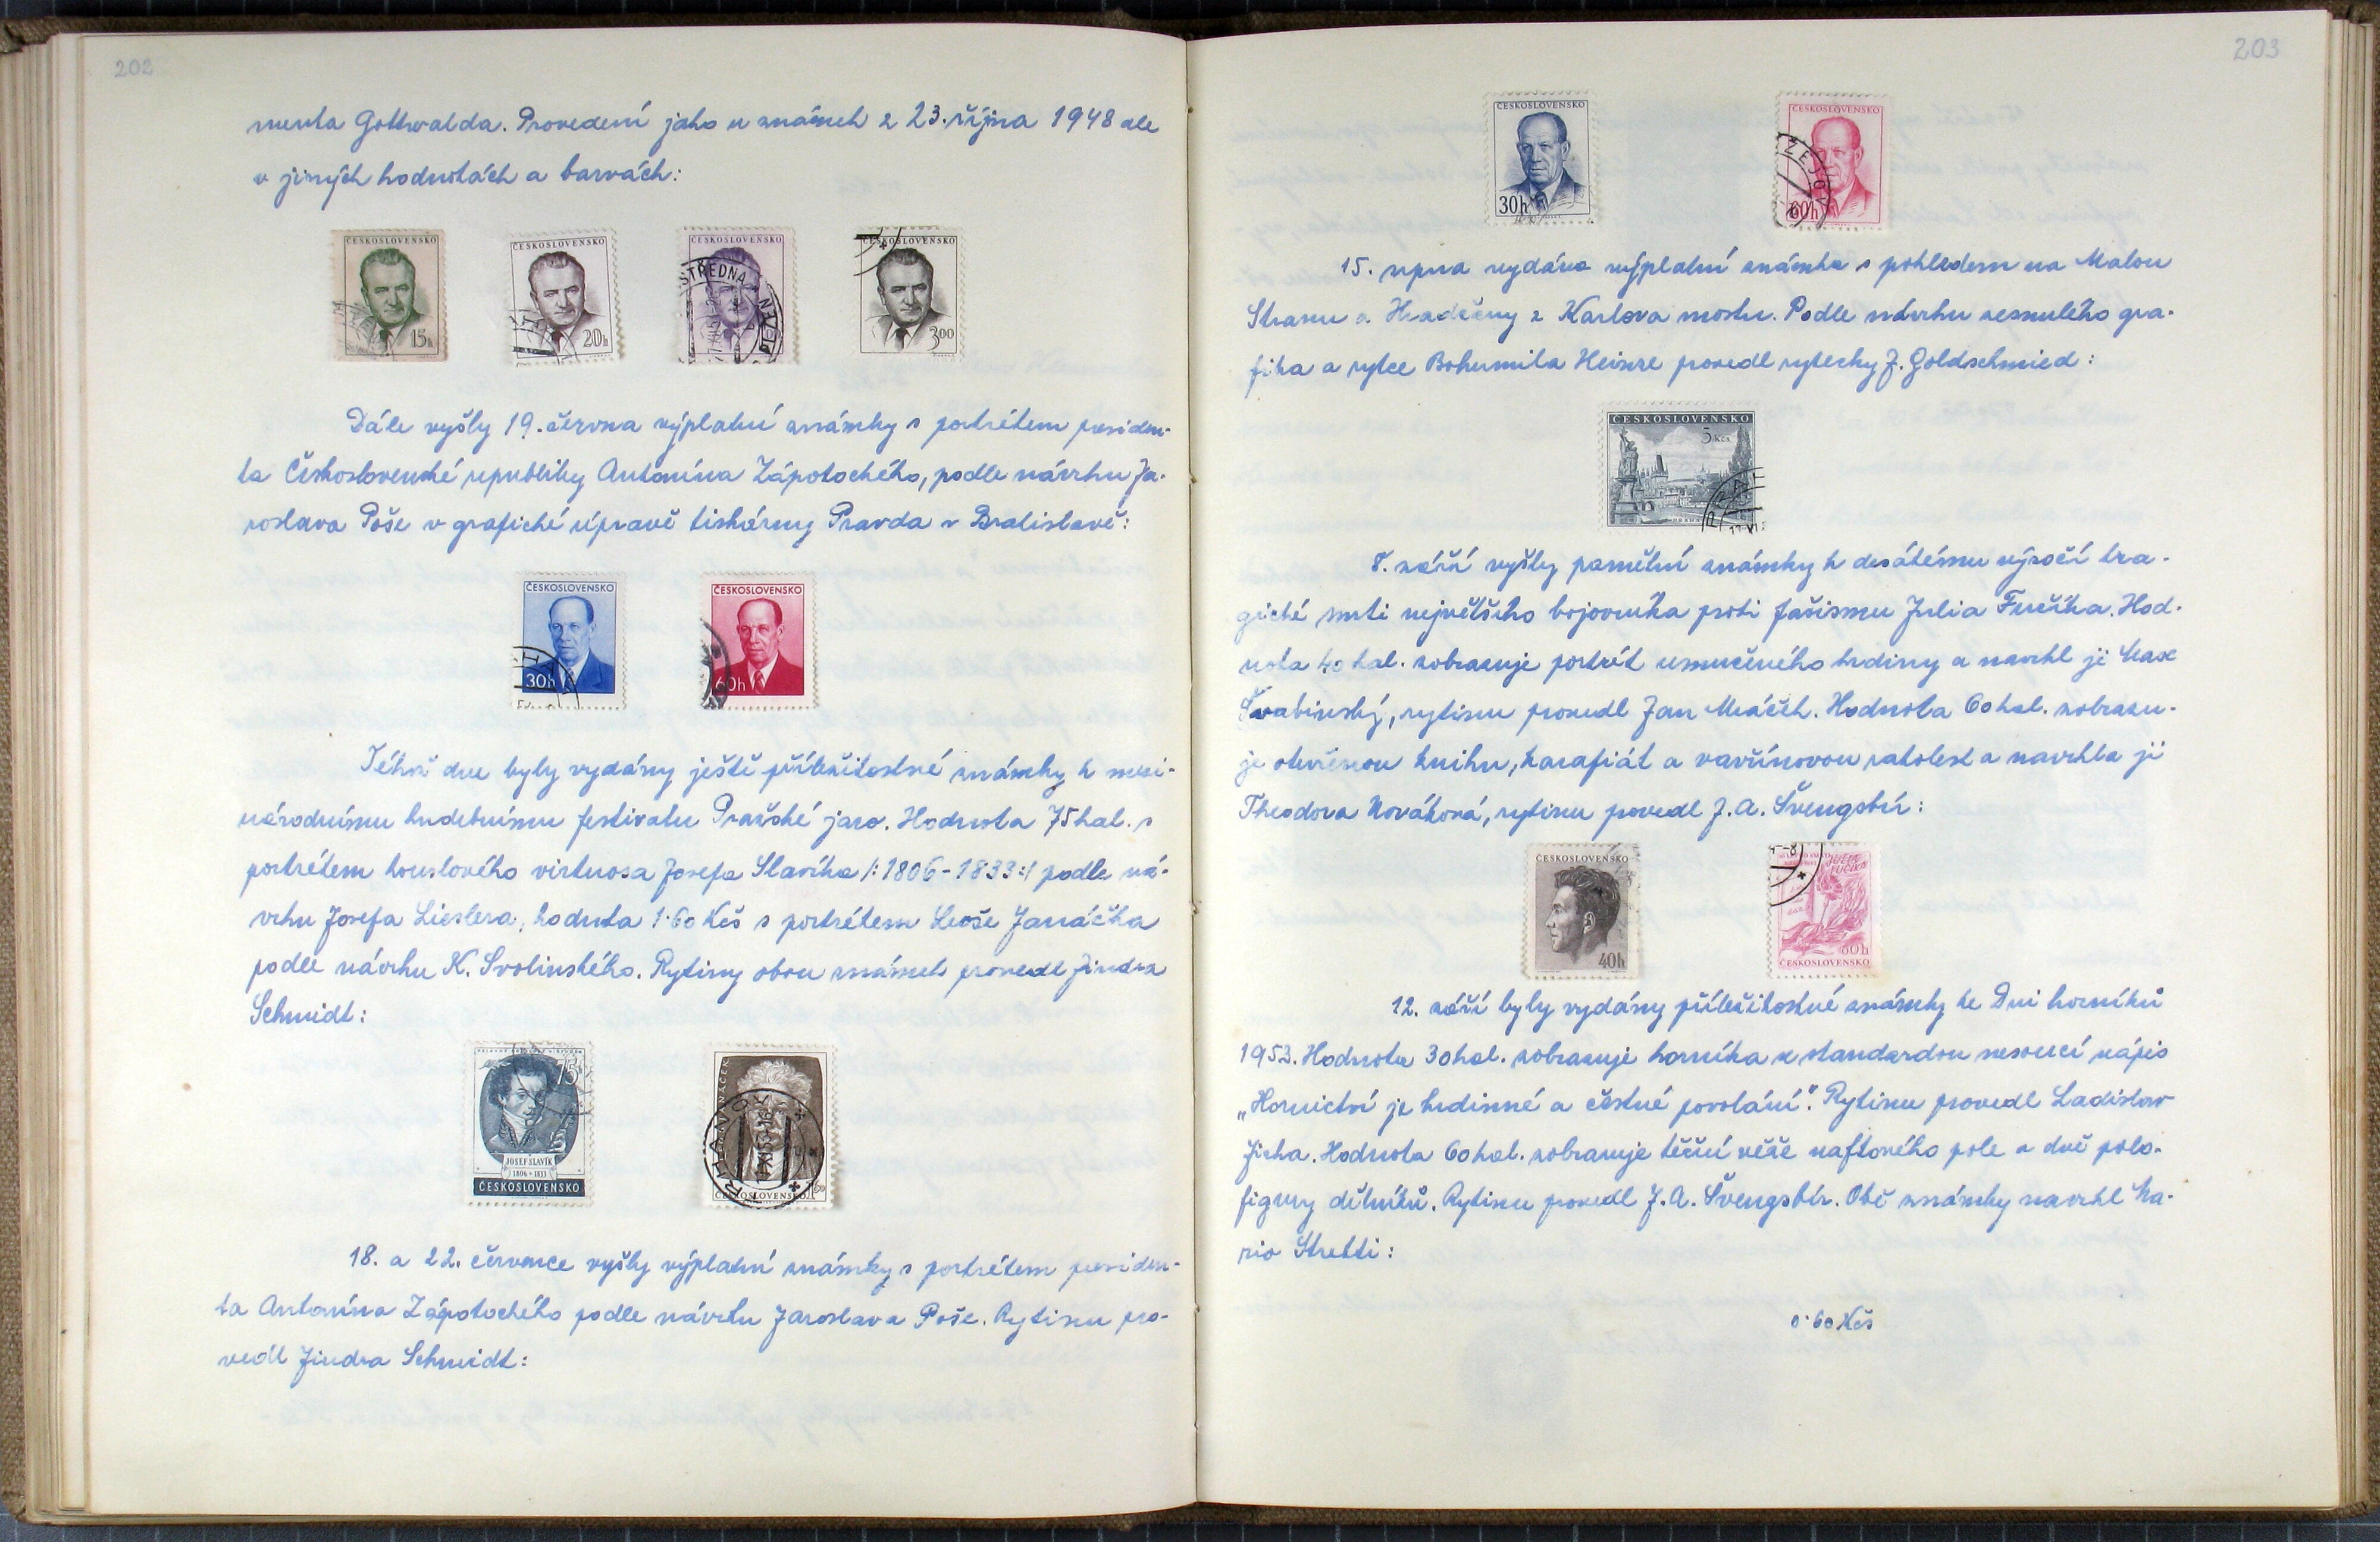 202
menta Gottwalda. Provedení jako u známek z 23. října 1948 ale
v jiných hodnotách a barvách:
ČESKOSLOVENSKO
15h
ČESKOSLOVENSKO
20h
ČESKOSLOVENSKO
STŘEDNÁ
ČESKOSLOVENSKO
3.00
Dále vyšly 19. června výplatní známky s portrétem presiden-
ta Československé republiky Antonína Zápotockého, podle návrhu Ja-
roslava Poše v grafické úpravě tiskárny Pravda v Bratislavě:
ČESKOSLOVENSKO
30h
ČESKOSLOVENSKO
60h
Téhož dne byly vydány ještě příležitostné známky k mezi-
národnímu hudebnímu festivalu Pražské jaro. Hodnota 75 hal. s
portrétem houslového virtuosa Josefa Slavíka /:1806-1833:/ podle ná-
vrhu Josefa Lieslera, hodnota 1·60 Kčs s portrétem Leoše Janáčka
podle návrhu K. Svolinského. Rytiny obou známek provedl Jindra
Schmidt:
75h
JOSEF SLAVÍK
1806 1833
ČESKOSLOVENSKO
ČESKOSLOVENSKO 1.60
18. a 22. července vyšly výplatní známky s portrétem presiden-
ta Antonína Zápotockého podle návrhu Jaroslava Poše. Rytinu pro-
vedl Jindra Schmidt:
203
ČESKOSLOVENSKO
30h
ČESKOSLOVENSKO
60h
15. srpna vydána výplatní známka s pohledem na Malou
Stranu a Hradčany z Karlova mostu. Podle návrhu zesnulého gra-
fika a rytce Bohumila Heinze provedl rytecky J. Goldschmied:
ČESKOSLOVENSKO
5 Kčs
PRAHA
8. září vyšly pamětní známky k desátému výročí tra-
gické smrti největšího bojovníka proti fašismu Julia Fučíka. Hod-
nota 40 hal. zobrazuje portrét umučeného hrdiny a navrhl ji Max
Švabinský, rytinu provedl Jan Mráček. Hodnota 60 hal. zobrazu-
je otevřenou knihu, karafiát a vavřínovou ratolest a navrhla ji
Theodora Nováková, rytinu provedl J. A. Švengsbír:
ČESKOSLOVENSKO
40h
JULIUS
FUČÍK
60h
ČESKOSLOVENSKO
12. září byly vydány příležitostné známky ke Dni horníků
1953. Hodnota 30 hal. zobrazuje horníka se standardou nesoucí nápis
„Hornictví je hrdinné a čestné povolání". Rytinu provedl Ladislav
Jirka. Hodnota 60 hal. zobrazuje těžní věže naftového pole a dvě polo-
figury dělníků. Rytinu provedl J. A. Švengsbír. Obě známky navrhl Ma-
rio Stretti:
0·60 Kčs